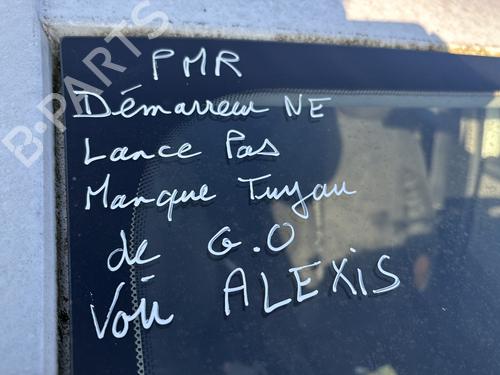 PMR
Démarreur NE
Lance Pas
Manque Tuyau
de G.O
Voir ALEXIS
B-PARTS